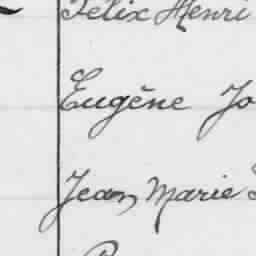 Félix Henri
Eugène Jo
Jean Marie